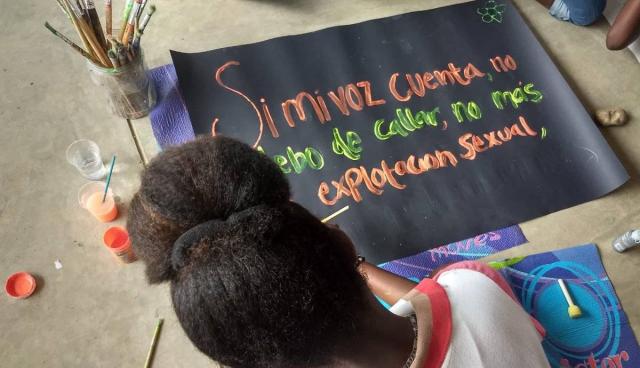 Si mi voz cuenta, no
debo de callar, no más
explotación sexual,